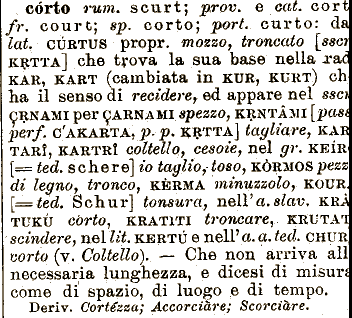 córto rum. scurt; prov. e cat. cort
fr. court; sp. corto; port. curto: da
lat. CÚRTUS propr. mozzo, troncato [sscr
KṚTTA] che trova la sua base nella rad
KAR, KART (cambiata in KUR, KURT) ch
ha il senso di recidere, ed appare nel sscr
ÇṚNAMI per ÇARNAMI spezzo, KṚNTÂMI [pass
perf. C'AKARTA, p. p. KṚTTA] tagliare, KAR
TARÎ, KARTRÎ coltello, cesoie, nel gr. KEÍR
[= ted. schere] io taglio, toso, KÒRMOS pezz
di legno, tronco, KÈRMA minuzzolo, KOUR
[= ted. Schur] tonsura, nell'a. slav. KRĂ
TUKŬ còrto, KRATITI troncare, KRUTAT
scindere, nel lit. KERTÙ e nell'a. a. ted. CHUR
corto (v. Coltello). — Che non arriva all
necessaria lunghezza, e dicesi di misura
come di spazio, di luogo e di tempo.
Deriv. Cortézza; Accorciàre; Scorciàre.